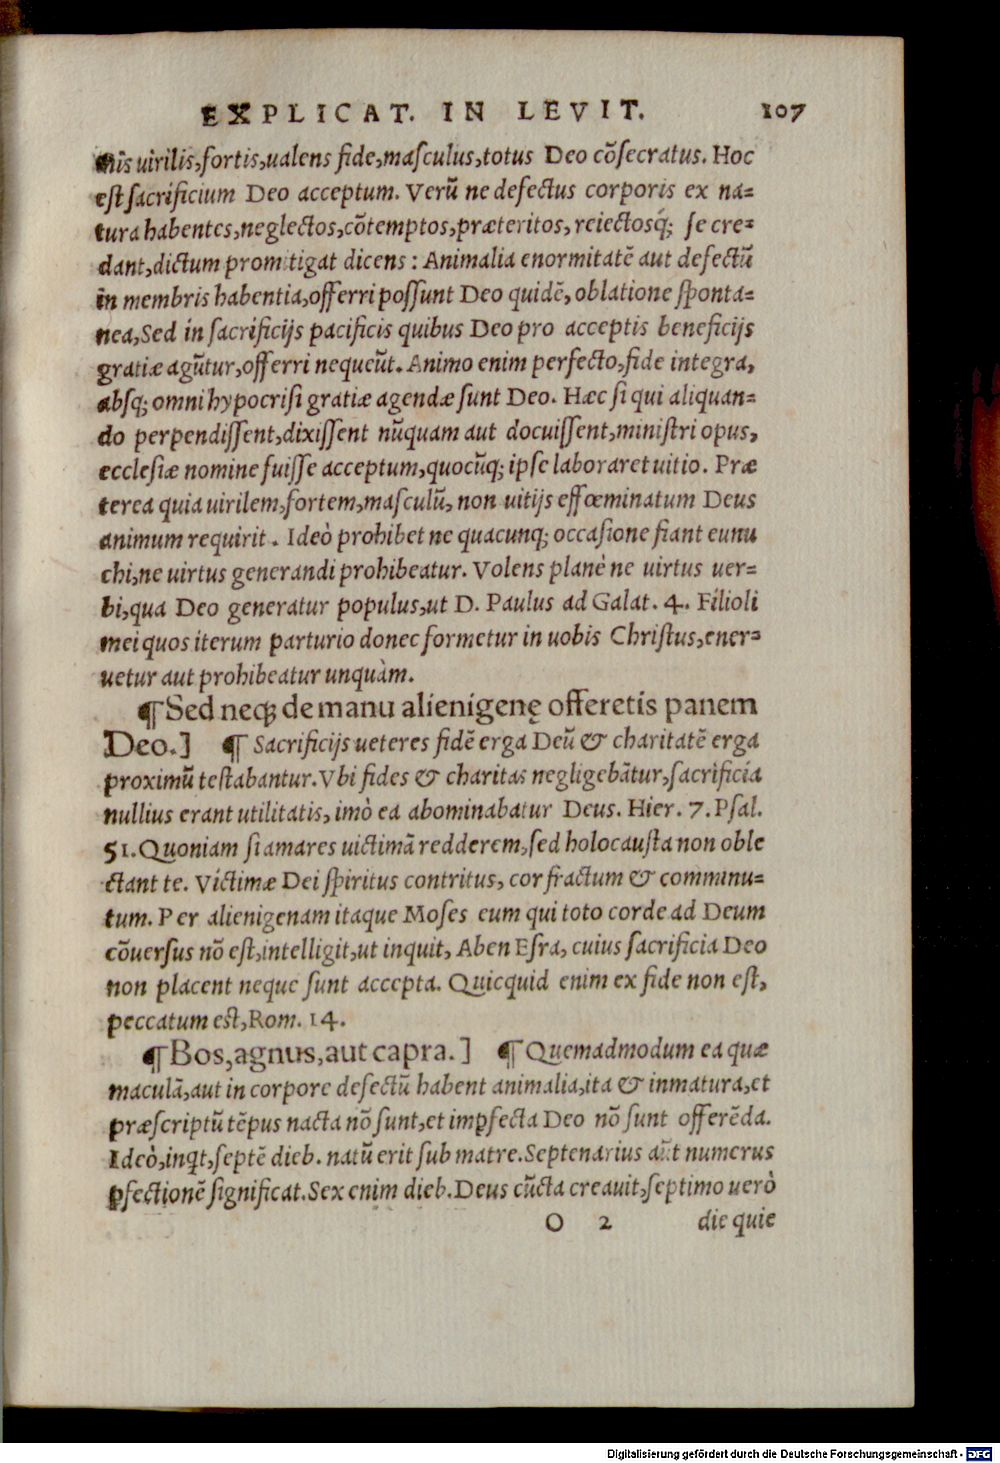 EXPLICAT. IN LEVIT. 107
mis uirilis, fortis, ualens fide, masculus, totus Deo cõsecratus. Hoc
est sacrificium Deo acceptum. Verũ ne defectus corporis ex na=
tura habentes, neglectos, cõtemptos, præteritos, reiectosq́; se cre=
dant, dictum prom tigat dicens : Animalia enormitatẽ aut defectũ
in membris habentia, offerri possunt Deo quidẽ, oblatione sponta=
nea, Sed in sacrificijs pacificis quibus Deo pro acceptis beneficijs
gratiæ agũtur, offerri nequeũt. Animo enim perfecto, fide integra,
absq; omni hypocrisi gratiæ agendæ sunt Deo. Hæc si qui aliquan=
do perpendissent, dixissent nũquam aut docuissent, ministri opus,
ecclesiæ nomine fuisse acceptum, quocũq; ipse laboraret uitio. Præ
terea quia uirilem, fortem, masculũ, non uitijs effœminatum Deus
animum requirit. Ideò prohibet ne quacunq; occasione fiant eunu
chi, ne uirtus generandi prohibeatur. Volens planè ne uirtus uer=
bi, qua Deo generatur populus, ut D. Paulus ad Galat. 4. Filioli
mei quos iterum parturio donec formetur in uobis Christus, ener=
uetur aut prohibeatur unquàm.
¶ Sed neq; de manu alienigenę offeretis panem
Deo.] ¶ Sacrificijs ueteres fidẽ erga Deũ & charitatẽ erga
proximũ testabantur. Vbi fides & charitas negligebãtur, sacrificia
nullius erant utilitatis, imò ea abominabatur Deus. Hier. 7. Psal.
51. Quoniam si amares uictimã redderem, sed holocausta non oble
ctant te. Victimæ Dei spiritus contritus, cor fractum & comminu=
tum. Per alienigenam itaque Moses eum qui toto corde ad Deum
cõuersus nõ est, intelligit, ut inquit, Aben Esra, cuius sacrificia Deo
non placent neque sunt accepta. Quicquid enim ex fide non est,
peccatum est, Rom. 14.
¶ Bos, agnus, aut capra.] ¶ Quemadmodum ea quæ
maculã, aut in corpore defectũ habent animalia, ita & inmatura, et
præscriptũ tẽpus nacta nõ sunt, et imꝑfecta Deo nõ sunt offerẽda.
Ideò, inqt, septẽ dieb. natũ erit sub matre. Septenarius aũt numerus
ꝑfectionẽ significat. Sex enim dieb. Deus cũcta creauit, septimo uerò
O 2 die quie
Digitalisierung gefördert durch die Deutsche Forschungsgemeinschaft - DFG